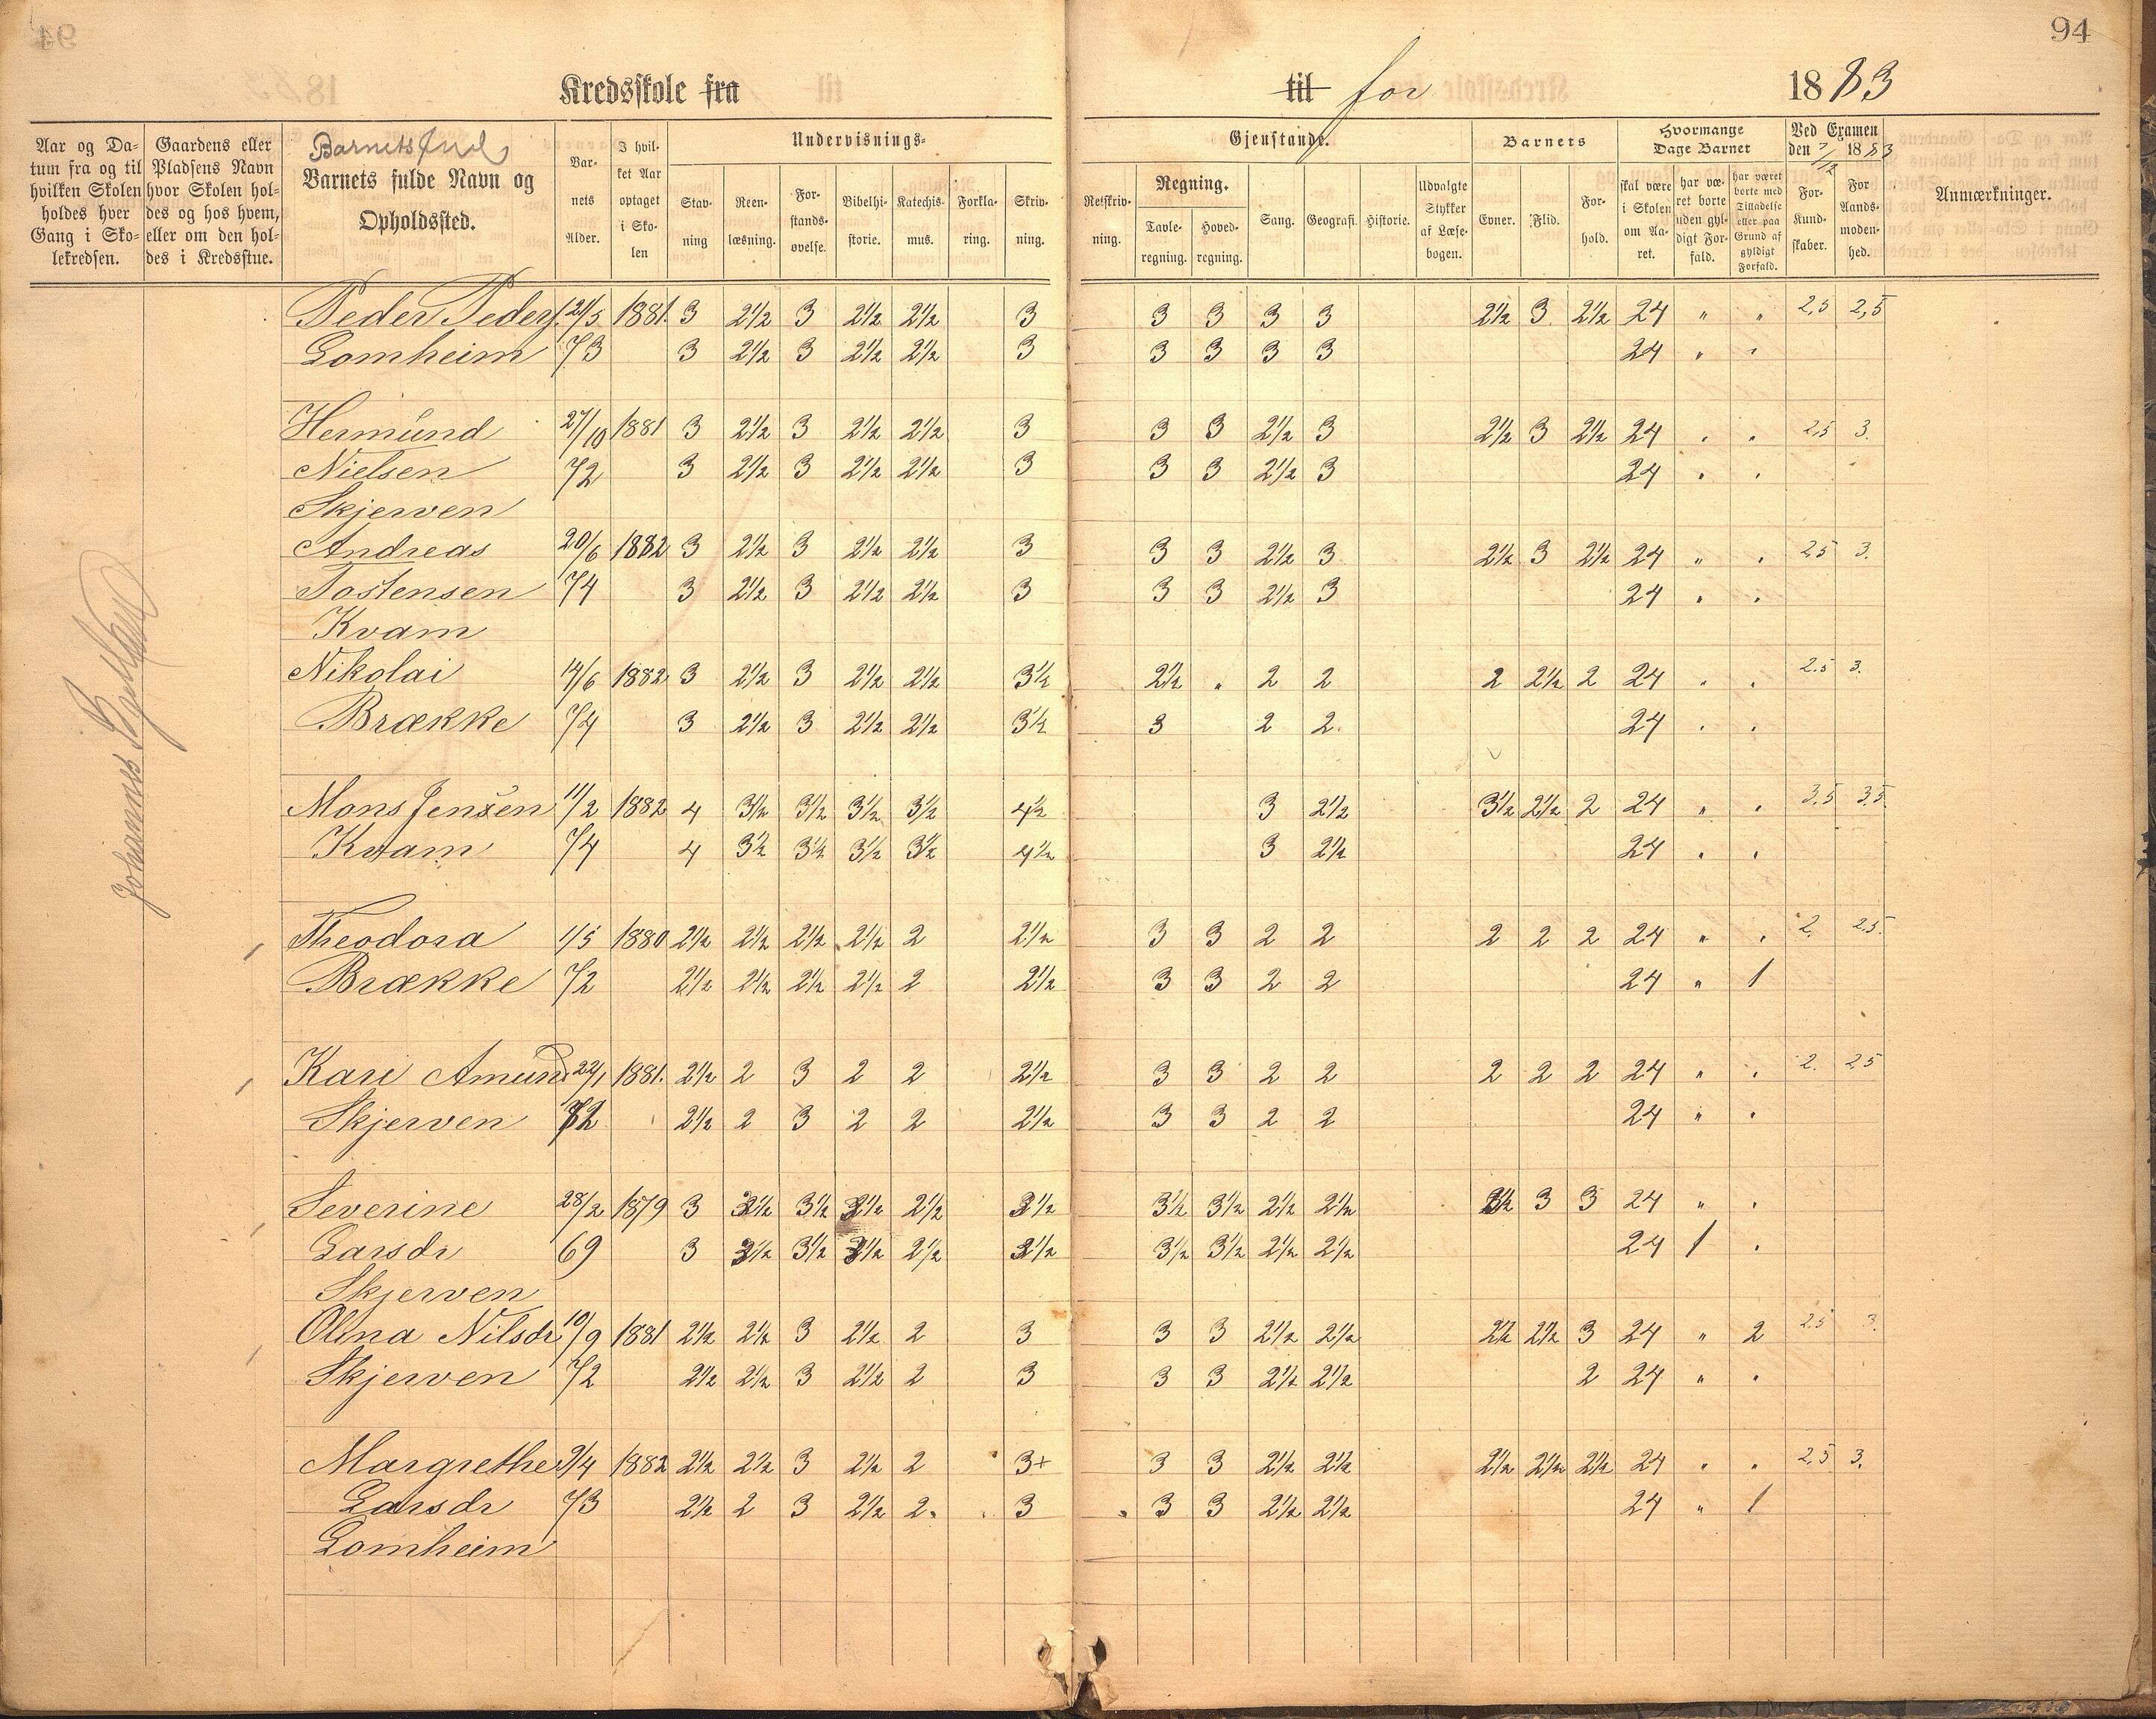 94
Kredsskole fra til for 1883
Aar og Da-
tum fra og til
hvilken Skolen
holdes hver
Gang i Sko-
lekredsen.
Gaardens eller
Pladsens Navn
hvor Skolen hol-
des og hos hvem,
eller om den hol-
des i Kredsstue.
Barnets fulde Navn og
Opholdssted.
Bar-
nets
Alder.
I hvil-
ket Aar
optaget
i Sko-
len
Undervisnings-
Stav-
ning
Reen-
læsning.
For-
stands-
øvelse.
Bibelhi-
storie.
Katechis-
mus.
Forkla-
ring.
Skriv-
ning.
Gjenstande.
Retskriv-
ning.
Regning.
Tavle-
regning.
Hoved-
regning.
Sang.
Geografi.
Historie.
Udvalgte
Stykker
af Læse-
bogen.
Barnets
Evner.
Flid.
For-
hold.
Hvormange
Dage Barnet
skal være
i Skolen
om Aa-
ret.
har væ-
ret borte
uden gyl-
digt For-
fald.
har været
borte med
Tilladelse
eller paa
Grund af
gyldigt
Forfald.
Ved Examen
den 7/12 1883
For
Kund-
skaber.
For
Aands-
moden-
hed.
Anmærkninger.
Peder Peders. 21/5 1881. 3 2½ 3 2½ 2½ 3 3 3 3 3 2½ 3 2½ 24 " " 2,5 2,5
Lomheim 73 3 2½ 3 2½ 2½ 3 3 3 3 3 24 " "
Hermund 27/10 1881 3 2½ 3 2½ 2½ 3 3 3 2½ 3 2½ 3 2½ 24 " " 2,5 3.
Nielsen 72 3 2½ 3 2½ 2½ 3 3 3 2½ 3 24 " "
Skjerven
Andreas 20/6 1882 3 2½ 3 2½ 2½ 3 3 3 2½ 3 2½ 3 2½ 24 " " 25 3.
Tostensen 74 3 2½ 3 2½ 2½ 3 3 3 2½ 3 24 " "
Kvam
Nikolai 14/6 1882 3 2½ 3 2½ 2½ 3½ 2½ " 2 2 2 2½ 2 24 " " 2.5 3.
Brække 74 3 2½ 3 2½ 2½ 3½ 3 2 2. 24 " "
Mons Jensen 11/2 1882 4 3½ 3½ 3½ 3½ 4½ 3 2½ 3½ 2½ 2 24 " " 3.5 3.5
Kvam 74 4 3½ 3½ 3½ 3½ 4½ 3 2½ 24 " "
Theodora 1/5 1880 2½ 2½ 2½ 2½ 2 2½ 3 3 2 2 2 2 2 24 " " 2. 2.5.
Brække 72 2½ 2½ 2½ 2½ 2 2½ 3 3 2 2 24 " 1
Kari Amund 22/1 1881. 2½ 2 3 2 2 2½ 3 3 2 2 2 2 2 24 " " 2. 25
Skjerven 72 2½ 2 3 2 2 2½ 3 3 2 2 24 " "
Severine 28/2 1879 3 3½ 3½ 3½ 2½ 3½ 3½ 3½ 2½ 2½ 3½ 3 3 24 " "
Larsdr 69 3 3½ 3½ 3½ 2½ 3½ 3½ 3½ 2½ 2½ 24 1 "
Skjerven
Olina Nilsdr 10/9 1881 2½ 2½ 3 2½ 2 3 3 3 2½ 2½ 2½ 2½ 3 24 " 2 2.5 3.
Skjerven 72 2½ 2½ 3 2½ 2 3 3 3 2½ 2½ 2 24 " "
Margrethe 9/4 1882 2½ 2½ 3 2½ 2 3+ 3 3 2½ 2½ 2½ 2½ 2½ 24 " " 2,5 3.
Larsdr 73 2½ 2 3 2½ 2. 3 3 3 2½ 2½ 24 " 1
Lomheim